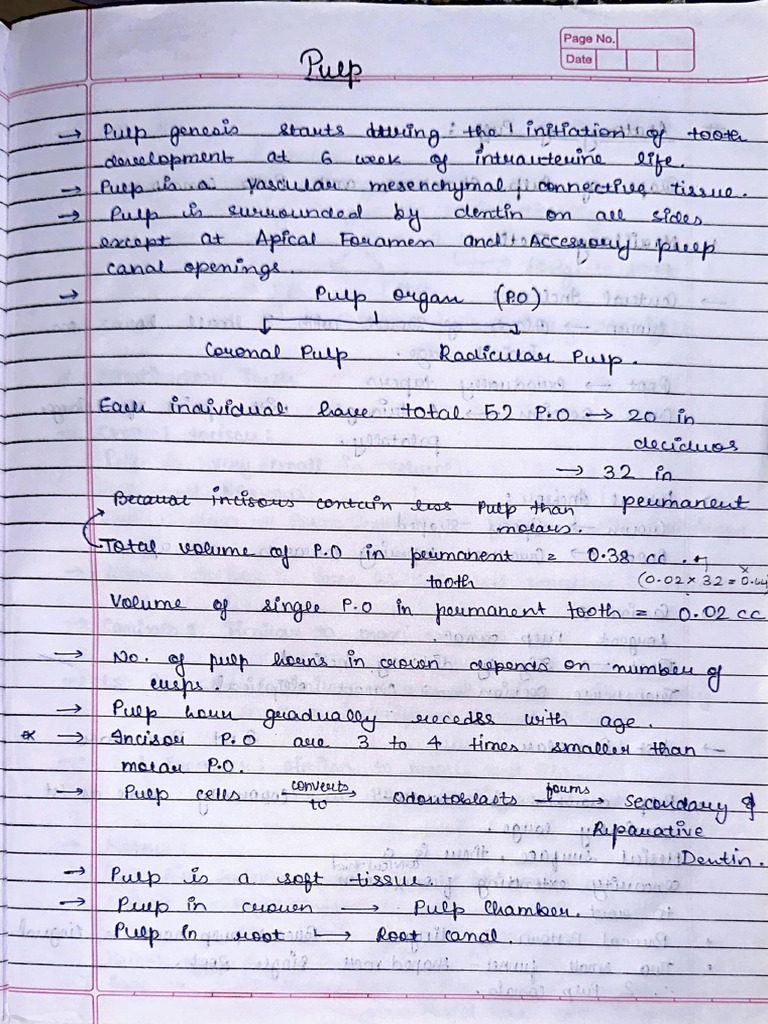 Page No.
Date
Pulp
→ Pulp genesis starts during the initiation of tooth
development at 6 week of intrauterine life.
→ Pulp is a vascular mesenchymal connective tissue.
→ Pulp is surrounded by dentin on all sides
except at Apical Foramen and Accessory pulp
canal openings.
→ Pulp organ (P.O)
Coronal Pulp Radicular Pulp.
Each individual have total 52 P.O → 20 in
deciduos
→ 32 in
Because incisors contain less pulp than permanent
molars.
Total volume of P.O in permanent = 0.38 cc.
tooth (0.02 × 32 = 0.64)
Volume of single P.O in permanent tooth = 0.02 cc
→ No. of pulp horns in crown depends on number of
cusps.
→ Pulp horn gradually recedes with age.
* → Incisor P.O are 3 to 4 times smaller than
molar P.O.
→ Pulp cells converts to → Odontoblasts forms → Secondary &
Reparative
Dentin.
→ Pulp is a soft tissue.
→ Pulp in crown → Pulp Chamber.
Pulp in root → Root canal.